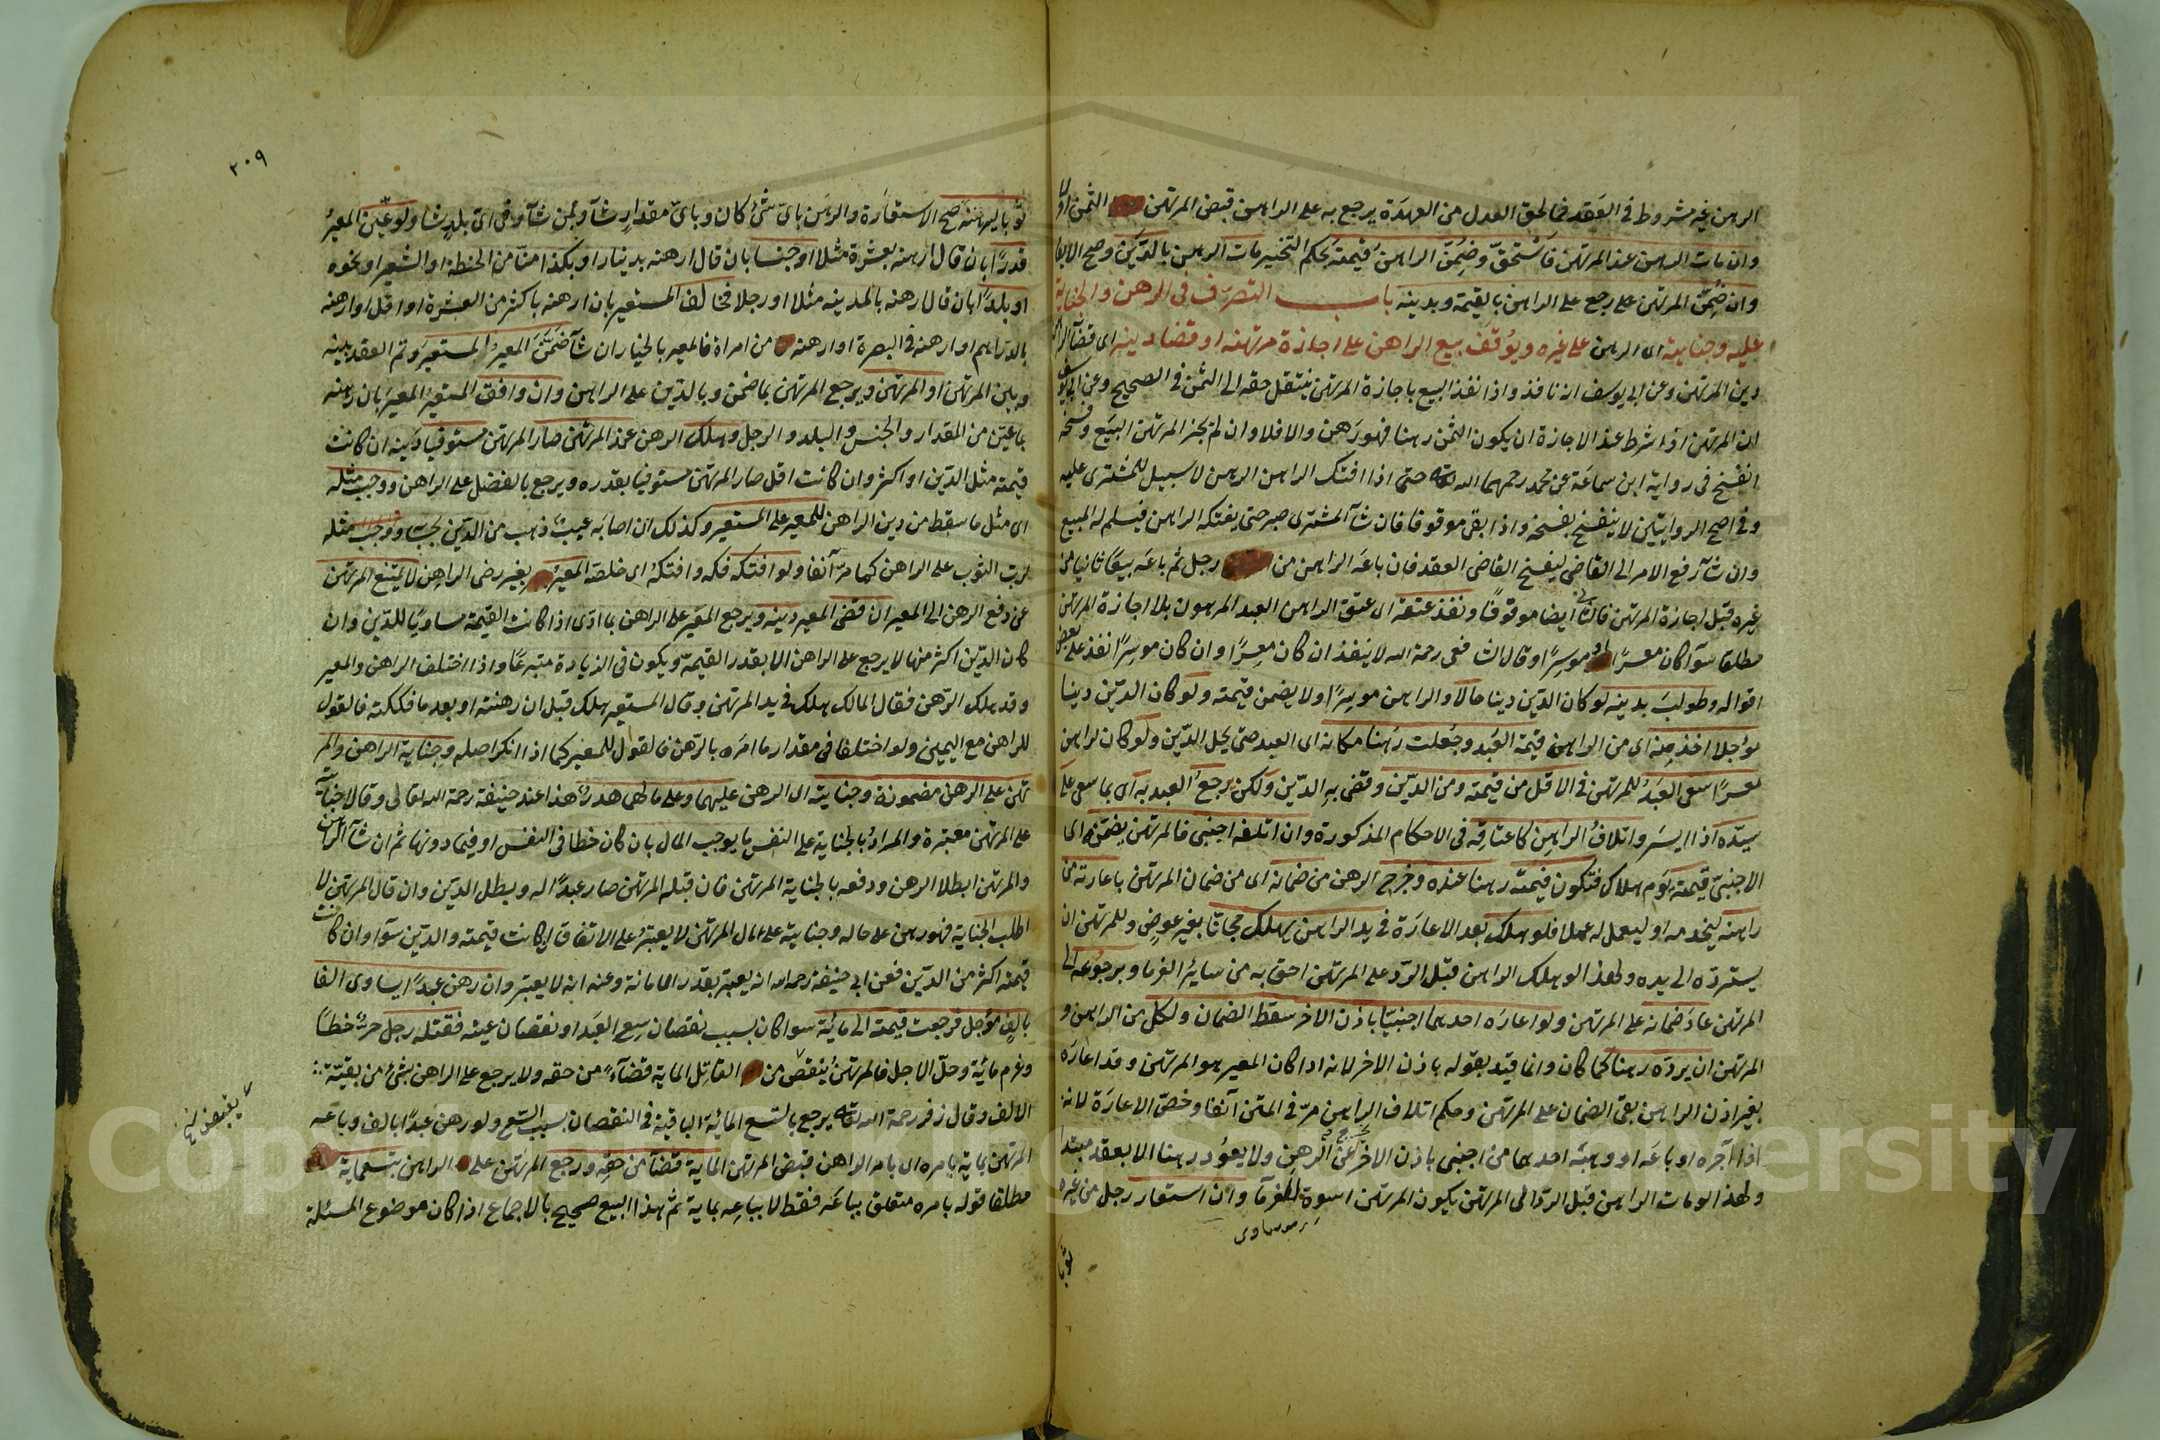 الرهن غير مشروط في العقد فما لحق العدل من العهدة يرجع به على الراهن قبض المرتهن الثمن اولا
وان مات الرهن عند المرتهن فاستحق وضمن الراهن قيمته بحكم التخيير مات الرهن بالدين وصح الايفا
وان ضمن المرتهن على رجع على الراهن بالقيمة وبدينه باب التصرف في الرهن والجناية
عليه وجنايته اى الرهن على غيره ويوقف بيع الراهن على اجازة مرتهنه او قضا دينه اى قضا الراهن
دين المرتهن وعن ابي يوسف انه نافذ واذا نفذ البيع باجازة المرتهن ينتقل حقه الى الثمن في الصحيح وعن ابي يوسف
ان المرتهن اذا شرط عند الاجازة ان يكون الثمن رهنا فهو رهن والا فلا وان لم يجز المرتهن البيع وفسخه
انفسخ في رواية ابن سماعة عن محمد رحمهما الله حتى اذا افتك الراهن الرهن لا سبيل للمشترى عليه
وفي اصح الروايتين لا ينفسخ بفسخه واذا بقى موقوفا فان شآ المشترى صبر حتى يفتكه الراهن فيسلم له المبيع
وان شآ رفع الامر الى القاضى ليفسخ القاضى العقد فان باعه الراهن من رجل ثم باعه بيعا ثانيا من
غيره قبل اجازة المرتهن فالثاني ايضا موقوفا ونفذ عتقه اى عتق الراهن العبد المرهون بلا اجازة المرتهن
مطلقا سوآ كان معسرا او موسرا وقال الشافعى رحمه الله لا ينفذ ان كان معسرا وان كان موسرا نفذ على بعض
اقواله وطولب بدينه لو كان الدين دينا حالا والراهن موسرا ولا يضمن قيمته ولو كان الدين دينا
مؤجلا اخذ منه اى من الراهن قيمة العبد وجعلت رهنا مكانه اى العبد حتى يحل الدين ولو كان الراهن
معسرا سعى العبد للمرتهن في الاقل من قيمته ومن الدين وقضى به الدين ولكن يرجع العبد به اى بما سعى على
سيده اذا ايسر واتلاف الراهن كاعتاقه في الاحكام المذكورة وان اتلفه اجنبى فالمرتهن يضمنه اى
الاجنبى قيمته يوم هلاك فتكون قيمته رهنا عنده وخرج الرهن من ضمانه اى من ضمان المرتهن باعارته من
راهنه ليخدمه او ليعمل له عملا فلو هلك بعد الاعارة في يد الراهن يهلك مجانا بغير عوض وللمرتهن ان
يسترده الى يده ولهذا لو هلك الراهن قبل الرد على المرتهن احق به من ساير الغرما وبرجوعه الى
المرتهن عاد ضمانه على المرتهن ولو اعاره احدهما اجنبيا باذن الاخر سقط الضمان ولكل من الراهن و
المرتهن ان يرده رهنا كما كان وانما قيد بقوله باذن الاخر لانه اذا كان المعير هو المرتهن وقد اعاره
بغير اذن الراهن بقى الضمان على المرتهن وحكم اتلاف الراهن مر في المتن آنفا وخص الاعارة لانه
اذا آجره او باعه او وهبه احدهما من اجنبى باذن الاخر خرج عن الرهن ولا يعود رهنا الا بعقد مبتدا
ولهذا لو مات الراهن قبل الرد الى المرتهن يكون المرتهن اسوة للغرمآ وان استعار رجل من غيره
ثوبا
٢٠٩
ثوبا ليرهنه صح الاستعارة والرهن باى شئ كان وباى مقدار شآ وبمن شآ وفي اى بلد شا ولو عين المعير
قدرا بان قال ارهنه بعشرة مثلا او جنسا بان قال ارهنه بدينار او بكذا منا من الحنطة او الشعير او نحوه
او بلدا بان قال ارهنه بالمدينه مثلا او رجلا فخالف المستعير بان ارهنه باكثر من العشرة او اقل او ارهنه
بالدراهم او ارهنه في البصرة او ارهنه من امراة فالمعير بالخيار ان شآ ضمن المعير المستعير وتم العقد بينه
وبين المرتهن او المرتهن ويرجع المرتهن بما ضمن وبالدين على الراهن وان وافق المستعير المعير بان رهنه
بما عين من المقدار والجنس والبلد والرجل وهلك الرهن عند المرتهن صار المرتهن مستوفيا دينه ان كانت
قيمته مثل الدين او اكثر وان كانت اقل صار المرتهن مستوفيا بقدره ويرجع بالفضل على الراهن ووجب مثله
اى مثل ما سقط من دين الراهن للمعير على المستعير وكذلك ان اصابه عيب ذهب من الدين بحسابه ووجب مثله
لرب الثوب على الراهن كما مر آنفا ولو افتكه فكه وافتكه اى خلصه المعير بغير رضى الراهن لا يمتنع المرتهن
عن دفع الرهن الى المعير ان قضى المعير دينه ويرجع المعير على الراهن بما ادى اذا كانت القيمة مساويا للدين وان
كان الدين اكثر منها لا يرجع على الراهن الا بقدر القيمة ويكون في الزيادة متبرعا واذا اختلف الراهن والمعير
وقد هلك الرهن فقال المالك هلك في يد المرتهن وقال المستعير هلك قبل ان رهنته او بعد ما فككته فالقول
للراهن مع اليمين ولو اختلفا في مقدار ما امره بالرهن فالقول للمعير كما اذا انكر اصله وجناية الراهن والمر
تهن على الرهن مضمونة وجنايته اى الرهن عليهما وعلى مالهما هدر هذا عند ابى حنيفة رحمه الله تعالى وقالا جنايته
على المرتهن معتبرة والمراد بالجناية على النفس ما يوجب المال بان كان خطا في النفس او فيما دونها ثم ان شآ الراهن
والمرتهن ابطلا الرهن ودفعه بالجناية المرتهن فان قبله المرتهن صار عبدا له وبطل الدين وان قال المرتهن لا
اطلب الجناية فهو رهن على حاله وجنايته على مال المرتهن لا يعتبر على الاتفاق ان كانت قيمته والدين سوآ وان كانت
قيمته اكثر من الدين فعن ابي حنيفة رحمه الله انه يعتبر بقدر الامانة وعنه انه لا يعتبر وان رهن عبدا يساوى الفا
بالف مؤجل فرجعت قيمته الى مائية سوا كان بسبب نقصان سعر العبد او نقصان عينه فقتله رجل حر خطأ
وغرم مائية وحل الاجل فالمرتهن ينقص من القاتل الماية قضآء من حقه ولا يرجع على الراهن بشئ من بقيته
الالف وقال زفر رحمة الله يرجع بالتسع المائية الباقية في النقصان بسبب السعر ولو رهن عبدا بالف وباعه
المرتهن بماية بامره اى بامر الراهن قبض المرتهن الماية قضآ من حقه ورجع المرتهن على الراهن بتسعماية
مطلقا قوله بامره متعلق بباعه فقط لا بباعه بماية ثم هذا البيع صحيح بالاجماع اذا كان موضوع المسئلة
يقبض نخ